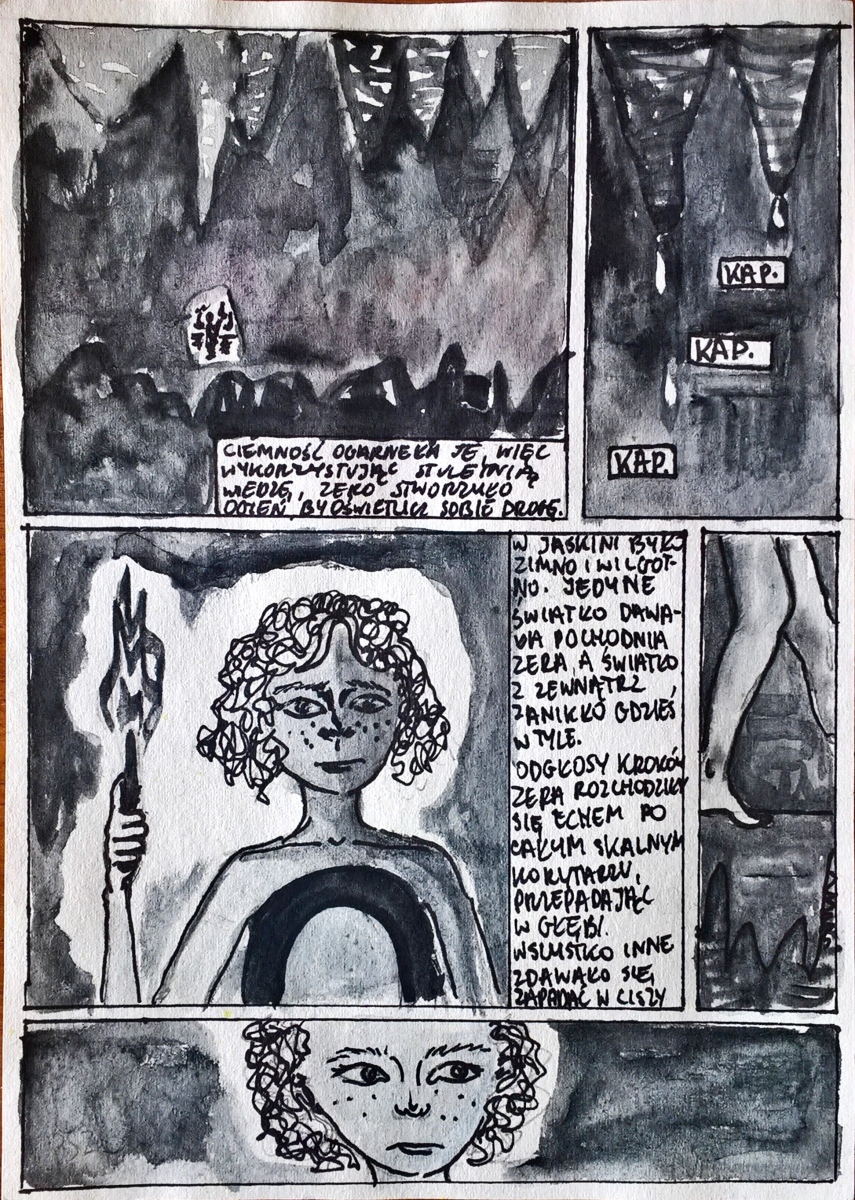 CIEMNOŚĆ OGARNĘŁA JE, WIĘC
WYKORZYSTUJĄC STULETNIĄ
WIEDZĘ, ZERO STWORZYŁO
OGIEŃ BY OŚWIETLIĆ SOBIE DROGĘ.
KAP.
KAP.
KAP.
W JASKINI BYŁO
ZIMNO I WILGOT-
NO. JEDYNE
ŚWIATŁO DAWA-
ŁA POCHODNIA
ZERA, A ŚWIATŁO
Z ZEWNĄTRZ
ZANIKŁO GDZIEŚ
W TYLE.
ODGŁOSY KROKÓW
ZERA ROZCHODZIŁY
SIĘ ECHEM PO
CAŁYM SKALNYM
KORYTARZU,
PRZEPADAJĄC
W GŁĘBI.
WSZYSTKO INNE
ZDAWAŁO SIĘ
ZAPADAĆ W CISZY